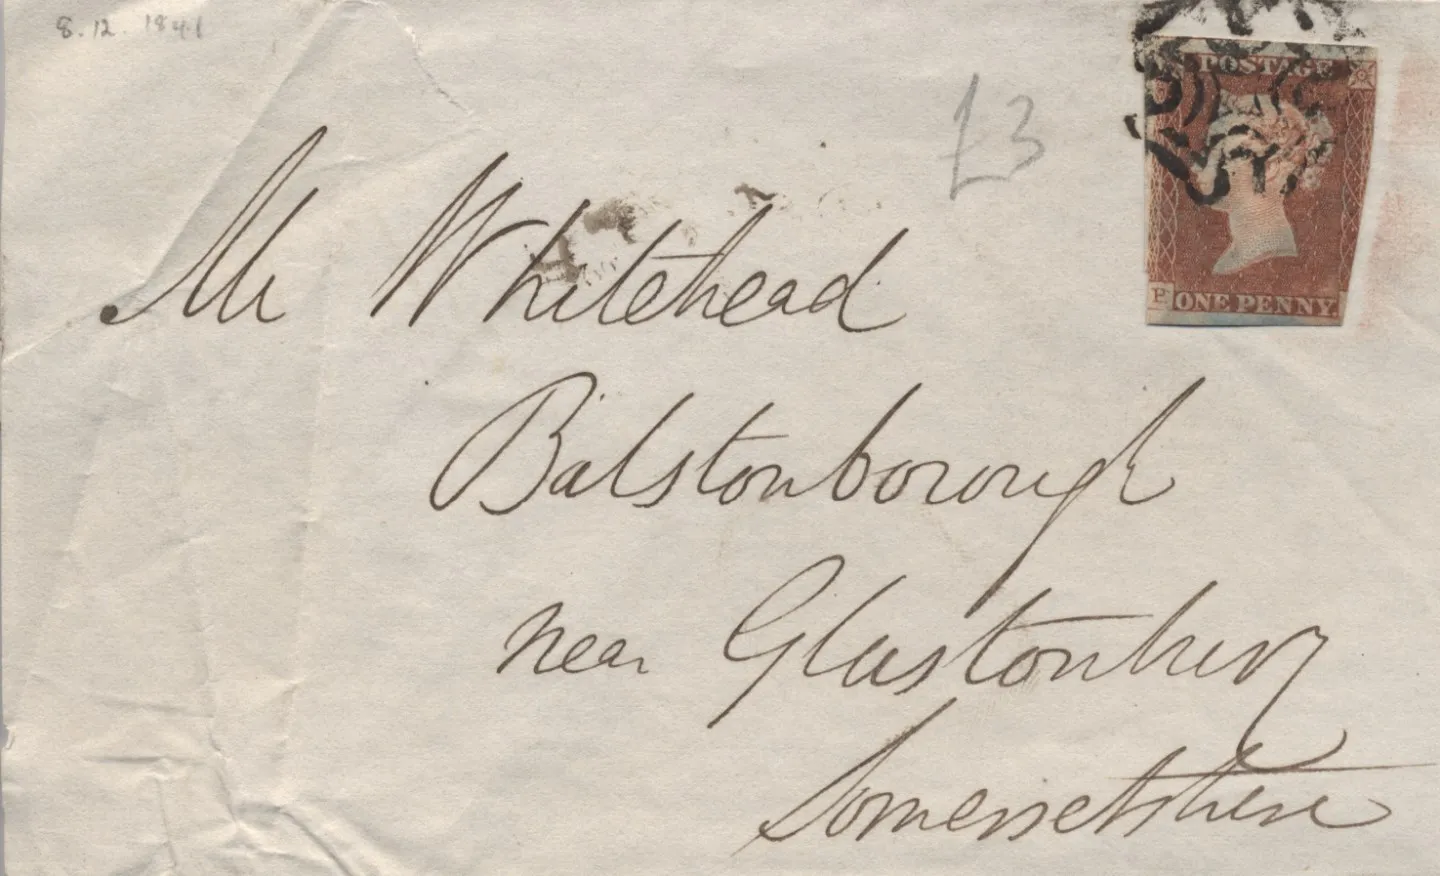 8.12.1841
£3
POSTAGE
P
ONE PENNY.
Mr Whitehead
Balstonborough
near Glastonbury
Somersetshire